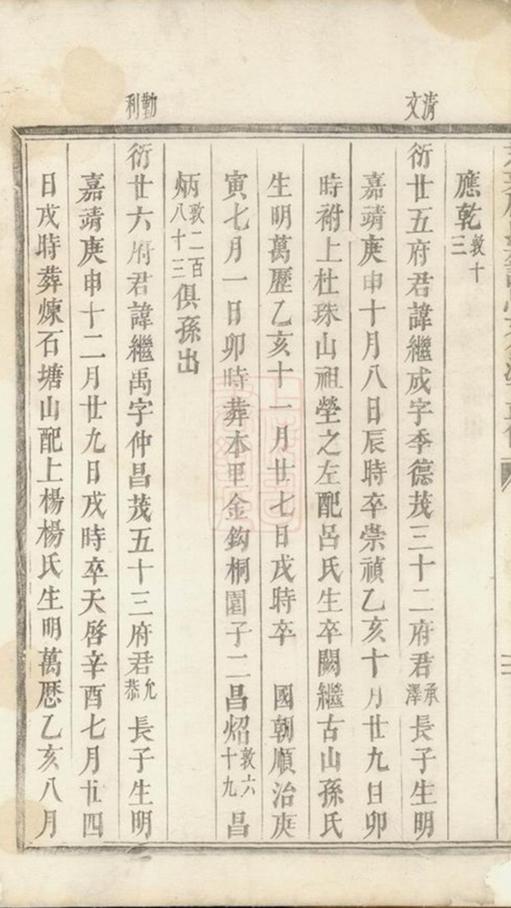 清文
勤利
應乾敦十三
衍廿五府君諱繼成字季德茂三十二府君承澤長子生明
嘉靖庚申十月八日辰時卒崇禎乙亥十月廿九日卯
時祔上杜珠山祖塋之左配呂氏生卒闕繼古山孫氏
生明萬歷乙亥十一月廿七日戌時卒 國朝順治庚
寅七月一日卯時葬本里金鈎桐園子二昌炤敦六十九昌
炳敦二百八十三俱孫出
衍廿六府君諱繼禹字仲昌茂五十三府君允恭長子生明
嘉靖庚申十二月廿九日戌時卒天啓辛酉七月廿四
日戌時葬煉石塘山配上楊楊氏生明萬歷乙亥八月